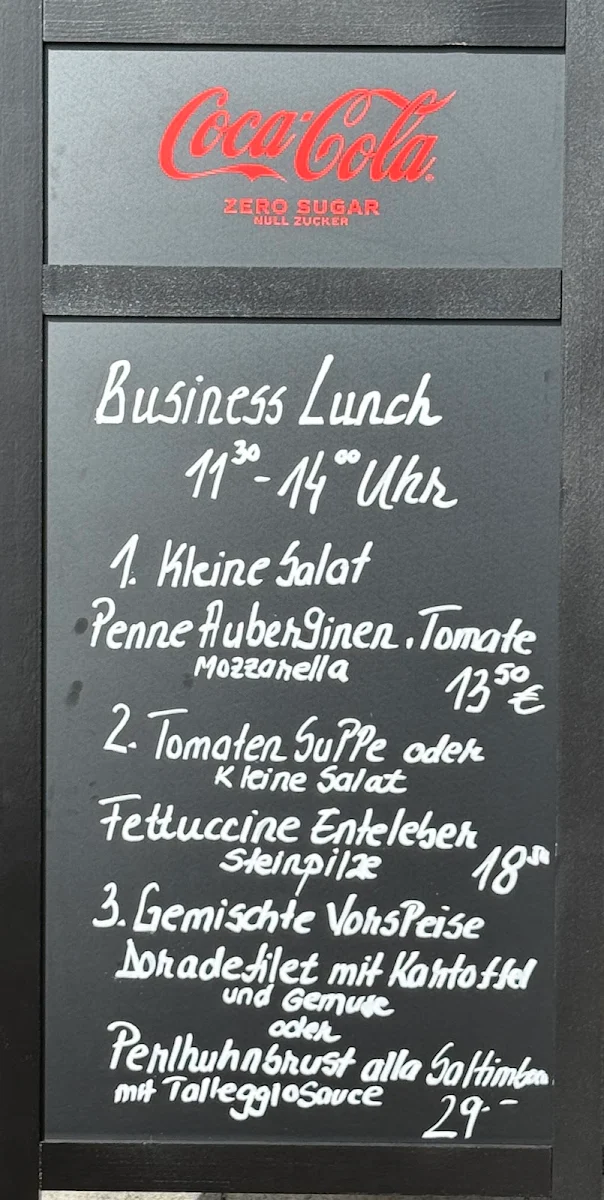 Coca-Cola
ZERO SUGAR
NULL ZUCKER
Business Lunch
11³⁰ - 14⁰⁰ Uhr
1. Kleine Salat
Penne Auberginen, Tomate
Mozzarella
13⁵⁰ €
2. Tomaten Suppe oder
Kleine Salat
Fettuccine Enteleber
Steinpilze
18⁵⁰
3. Gemischte Vorspeise
Doradefilet mit Kartoffel
und Gemuse
oder
Perlhuhnbrust alla Saltimboca
mit Talleggio Sauce
29.-